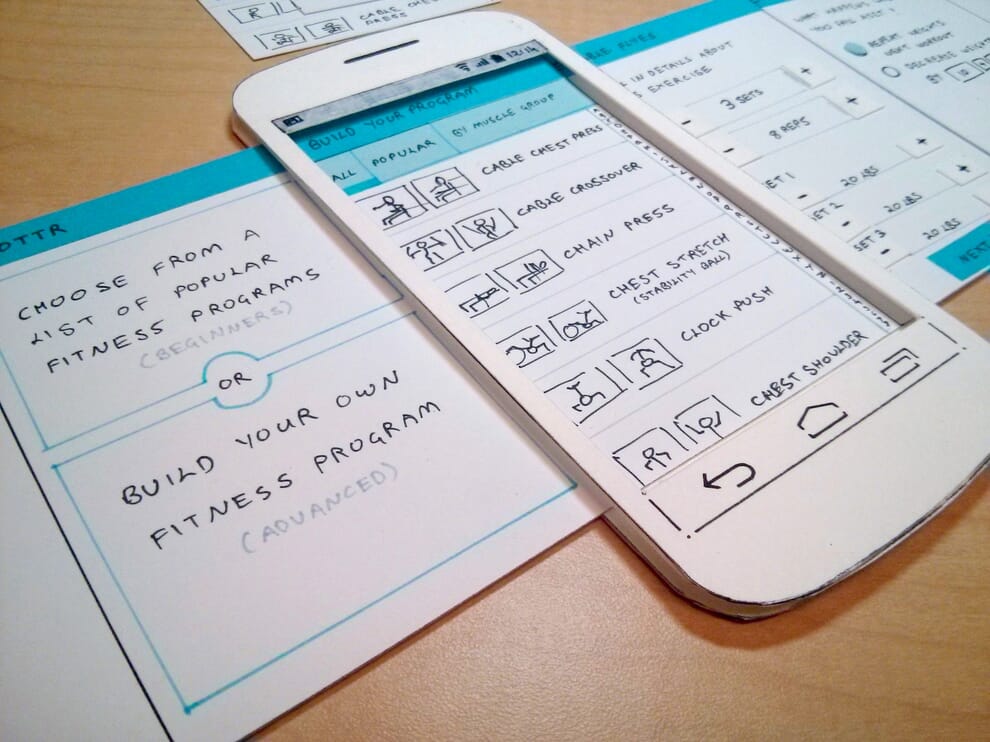 CABLE CHEST
PRESS
OTTR
CHOOSE FROM A
LIST OF POPULAR
FITNESS PROGRAMS
(BEGINNERS)
OR
BUILD YOUR OWN
FITNESS PROGRAM
(ADVANCED)
12:14
BUILD YOUR PROGRAM
ALL POPULAR BY MUSCLE GROUP
CABLE CHEST PRESS
CABLE CROSSOVER
CHAIN PRESS
CHEST STRETCH
(STABILITY BALL)
CLOCK PUSH
CHEST SHOULDER
FLYES
IN DETAILS ABOUT
EXERCISE
- 3 SETS +
- 8 REPS +
SET 1 - 20 LBS +
SET 2 - 20 LBS +
SET 3 - 20 LBS
NEXT
WHAT HAPPENS
YOU
REPEAT WEIGHTS
NEXT WORKOUT
DECREASE WEIGHT
BY 10